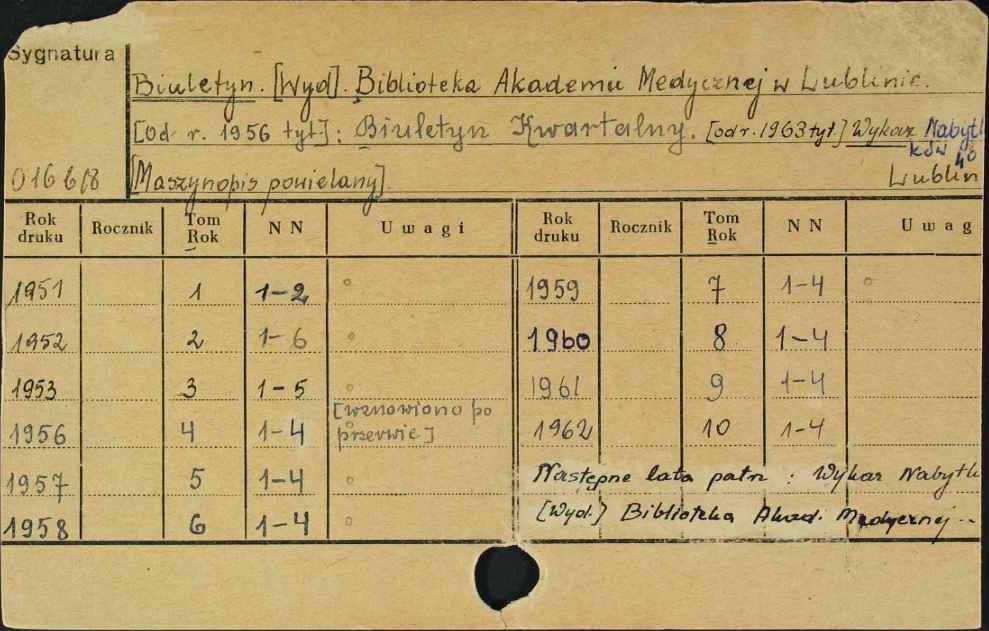 Sygnatura
Biuletyn. [Wyd]. Biblioteka Akademii Medycznej w Lublinie.
[Od r. 1956 tyt]: Biuletyn Kwartalny. [od r. 1963 tyt.] Wykaz Nabyt
ków
40
016 618 [Maszynopis powielany]. Lublin
Rok druku Rocznik Tom Rok NN Uwagi Rok druku Rocznik Tom Rok NN Uwag
1951 1 1-2 1959 7 1-4
1952 2 1-6 1960 8 1-4
1953 3 1-5 1961 9 1-4
[wznowiono po
1956 4 1-4 przerwie] 1962 10 1-4
1957 5 1-4 Następne lata patrz : Wykaz Nabytk
1958 6 1-4 [Wyd.] Biblioteka Akad. Medycznej..